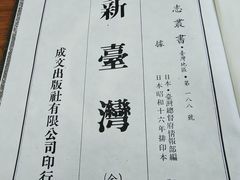 志叢書·臺灣地區·第一八八號
據日本·臺灣總督府情報部編
日本昭和十六年排印本
新臺灣
成文出版社有限公司印行